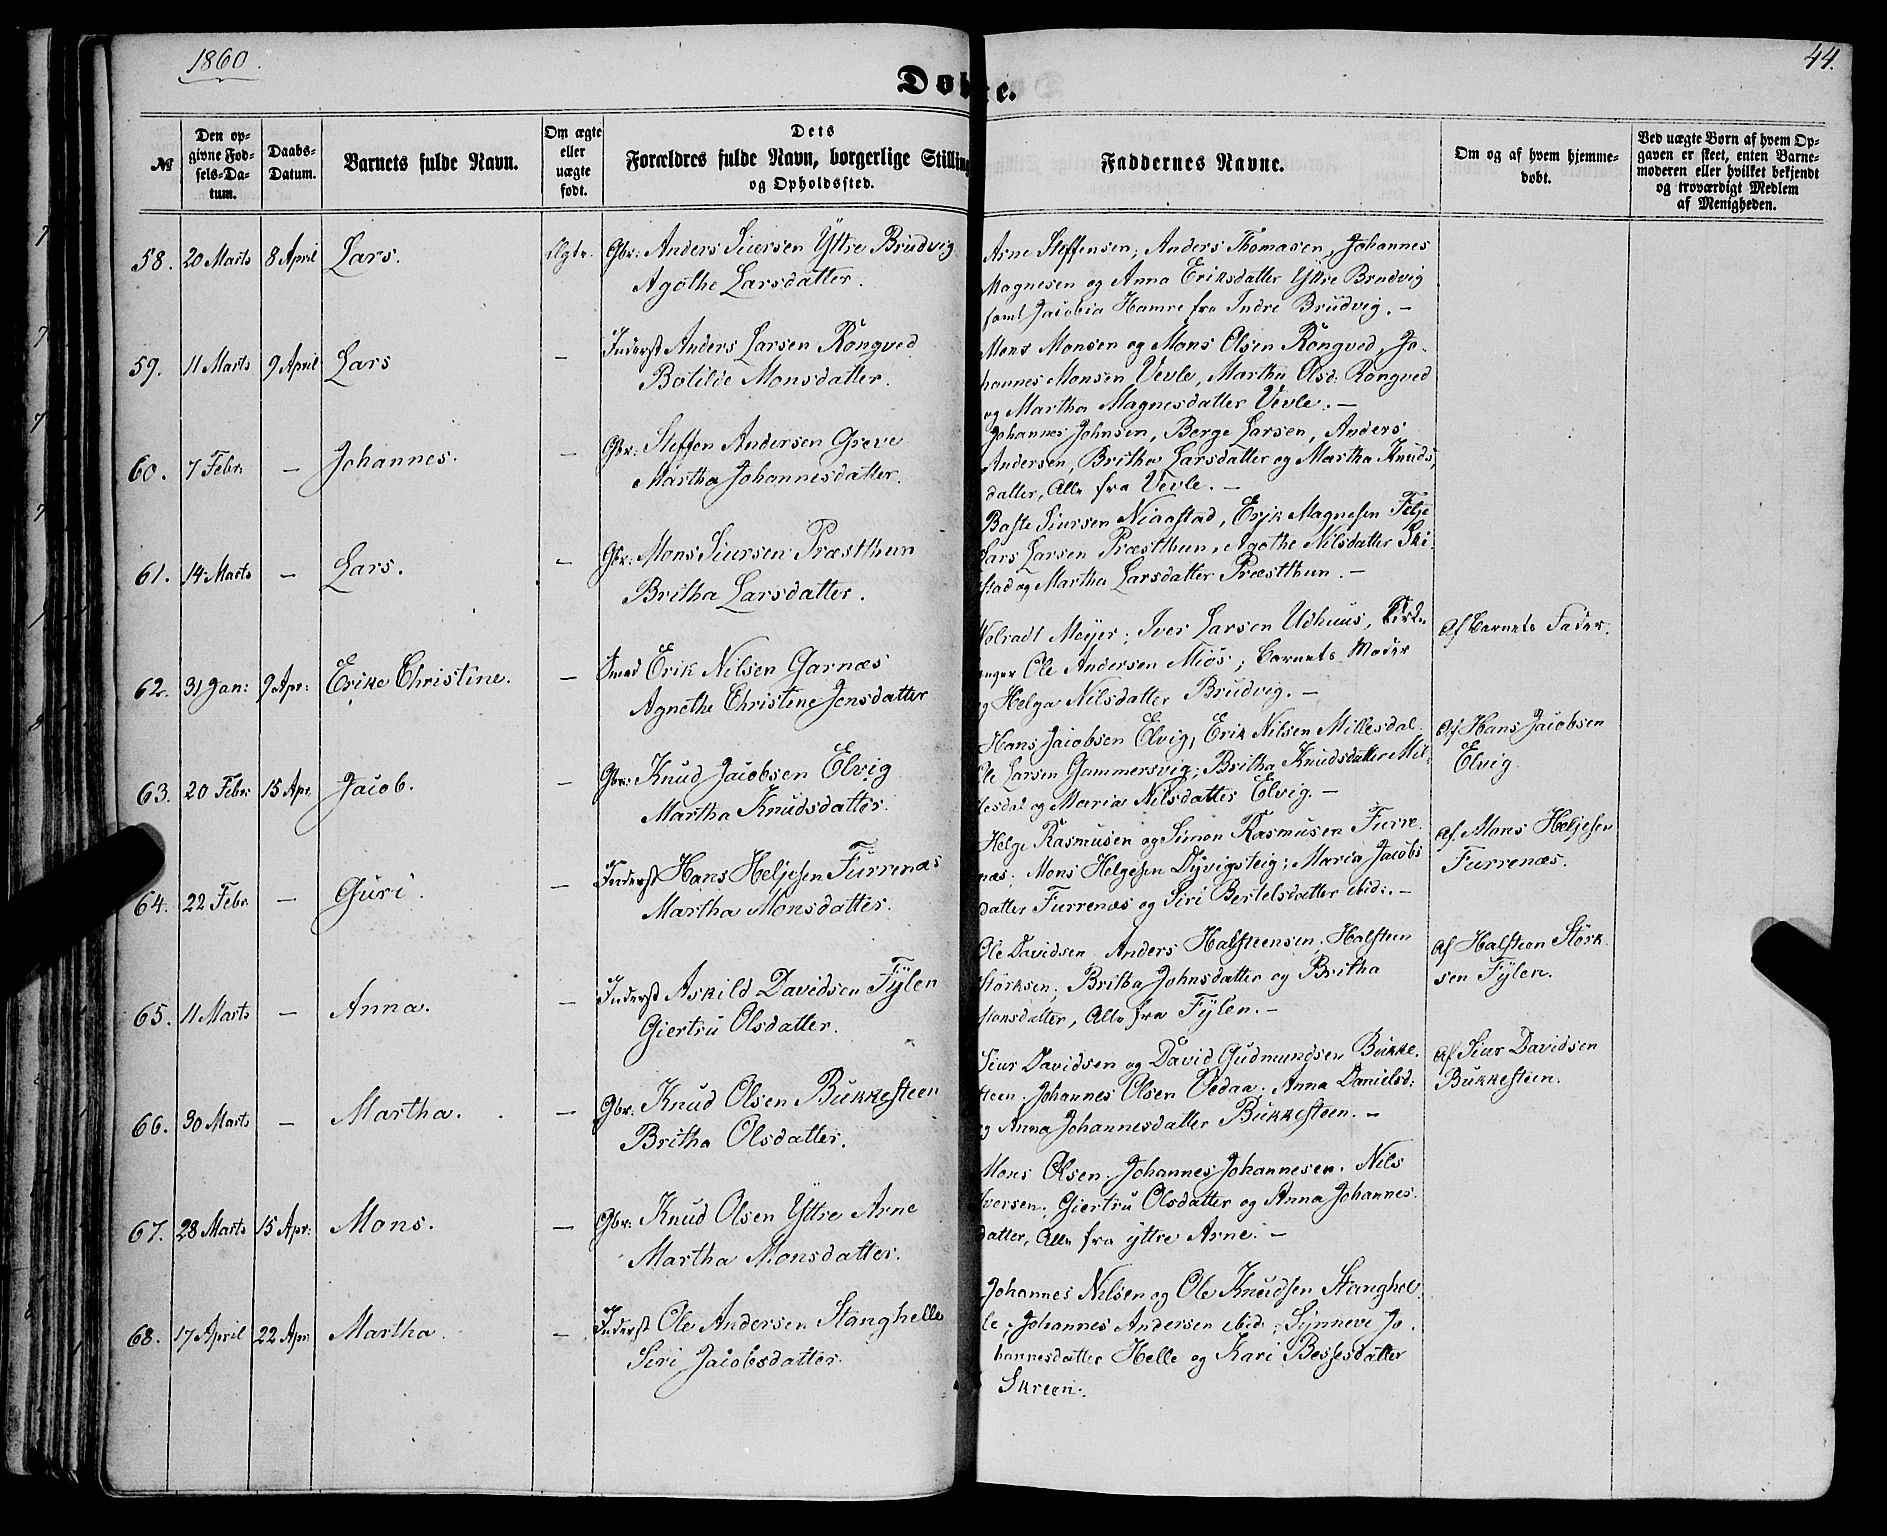 1860.
44.
Døbte.
No
Den opgivne Fødsels-Datum.
Daabs-Datum.
Barnets fulde Navn.
Om ægte eller uægte født.
Dets Forældres fulde Navn, borgerlige Stilling og Opholdssted.
Faddernes Navne.
Om og af hvem hjemmedøbt.
Ved uægte Børn af hvem Opgaven er skeet, enten Barnemoderen eller hvilket bekjendt og troværdigt Medlem af Menigheden.
58. 20 Marts 8 April Lars. Ægte. Gbr: Anders Siursen Yttre Brudvig
Agothe Larsdatter.
Arne Steffensen, Anders Thomasen, Johannes
Magnesen og Anna Eriksdatter Yttre Brudvig
saml Jacobia Hamre fra Indre Brudvig. –
59. 11 Marts 9 April Lars – Inderst Anders Larsen Rongved
Botilde Monsdatter.
Mons Monsen og Mons Olsen Rongved, Jo-
hannes Monsen Vevle, Martha Olsd: Rongved
og Martha Magnesdatter Vevle. –
60. 7 Febr. – Johannes. – Gbr: Steffen Andersen Greve
Martha Johannesdatter.
Johannes Johnsen, Berge Larsen, Anders
Andersen, Britha Larsdatter og Martha Knuds-
datter, Alle fra Vevle. –
61. 14 Marts – Lars. – Gbr: Mons Siursen Præstthun
Britha Larsdatter.
Baste Siursen Niaastad, Erik Magnesen Telje
Lars Larsen Præstthun, Agothe Nilsdatter Ski-
stad og Martha Larsdatter Præstthun. –
62. 31 Jan: 9 Apr: Erike Christine. – Smed Erik Nilsen Garnæs
Agnethe Christine Jensdatter
Wolradt Meyer, Iver Larsen Udhuus, Kirke-
sanger Ole Andersen Miøs, Barnets Moder
og Helga Nilsdatter Brudvig. –
Af Barnets Fader.
63. 20 Febr 15 Apr Jacob. – Gbr: Knud Jacobsen Elvig
Martha Knudsdatter.
Hans Jacobsen Elvig, Erik Nilsen Millesdal
Ole Larsen Gammersvig, Britha Knudsdatter Mil-
lesdal og Maria Nilsdatter Elvig. –
Af Hans Jacobsen
Elvig.
64. 22 Febr – Guri. – Inderst Hans Heljesen Furrenæs
Martha Monsdatter.
Helge Rasmusen og Simon Rasmusen Furre-
næs, Mons Helgesen Dyvigsteig, Maria Jacobs
datter Furrenæs og Siri Bertelsdatter ibid: –
Af Mons Heljesen
Furrenæs.
65. 11 Marts – Anna. – Inderst Askild Davidsen Fylen
Giertru Olsdatter.
Ole Davidsen, Anders Halsteensen, Halsteen
Størksen, Britha Johnsdatter og Britha
Monsdatter, Alle fra Fylen. –
Af Halsteen Størk-
sen Fylen.
66. 30 Marts – Martha. – Gbr: Knud Olsen Bukkesteen
Britha Olsdatter.
Siur Davidsen og David Gudmundsen Bukke-
steen, Johannes Olsen Vedaa, Anna Danielsd:
og Anna Johannesdatter Bukkesteen. –
Af Siur Davidsen
Bukkesteen.
67. 28 Marts 15 Apr: Mons. – Gbr: Knud Olsen Yttre Arne
Martha Monsdatter.
Mons Olsen, Johannes Johannesen, Nils
Iversen, Giertru Olsdatter og Anna Johannes-
datter, Alle fra yttre Arne. –
68. 17 April 22 Apr. Martha. – Inderst Ole Andersen Stanghelle
Siri Jacobsdatter.
Johannes Nilsen og Ole Knudsen Stanghel-
le, Johannes Andersen ibid, Synneve Jo-
hannesdatter Helle og Kari Bessesdatter
Skreen.